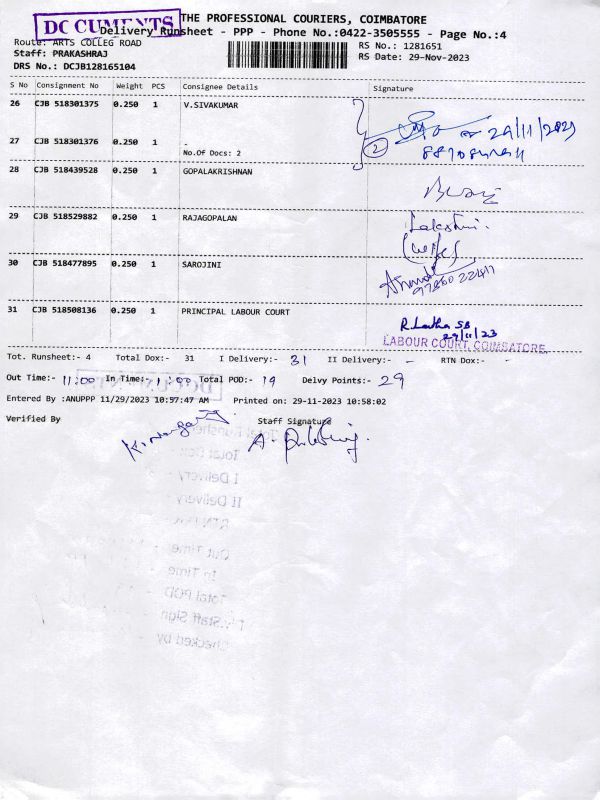 DOCUMENTS
THE PROFESSIONAL COURIERS, COIMBATORE
Delivery Runsheet - PPP - Phone No.:0422-3505555 - Page No.:4
Route: ARTS COLLEG ROAD
RS No.: 1281651
Staff: PRAKASHRAJ
RS Date: 29-Nov-2023
DRS No.: DCJB128165104
S No Consignment No Weight PCS Consignee Details Signature
26 CJB 518301375 0.250 1 V.SIVAKUMAR
29/11/2023
27 CJB 518301376 0.250 1 -
2
No.Of Docs: 2
28 CJB 518439528 0.250 1 GOPALAKRISHNAN
29 CJB 518529882 0.250 1 RAJAGOPALAN
Lakshmi.
(wife)
30 CJB 518477895 0.250 1 SAROJINI
31 CJB 518508136 0.250 1 PRINCIPAL LABOUR COURT
R.Latha SB
29/11/23
LABOUR COURT, COIMBATORE.
Tot. Runsheet:- 4 Total Dox:- 31 I Delivery:- 31 II Delivery:- - RTN Dox:- -
Out Time:- 11:00 In Time:- 21:00 Total POD:- 19 Delvy Points:- 29
Entered By :ANUPPP 11/29/2023 10:57:47 AM Printed on: 29-11-2023 10:58:02
Verified By Staff Signature